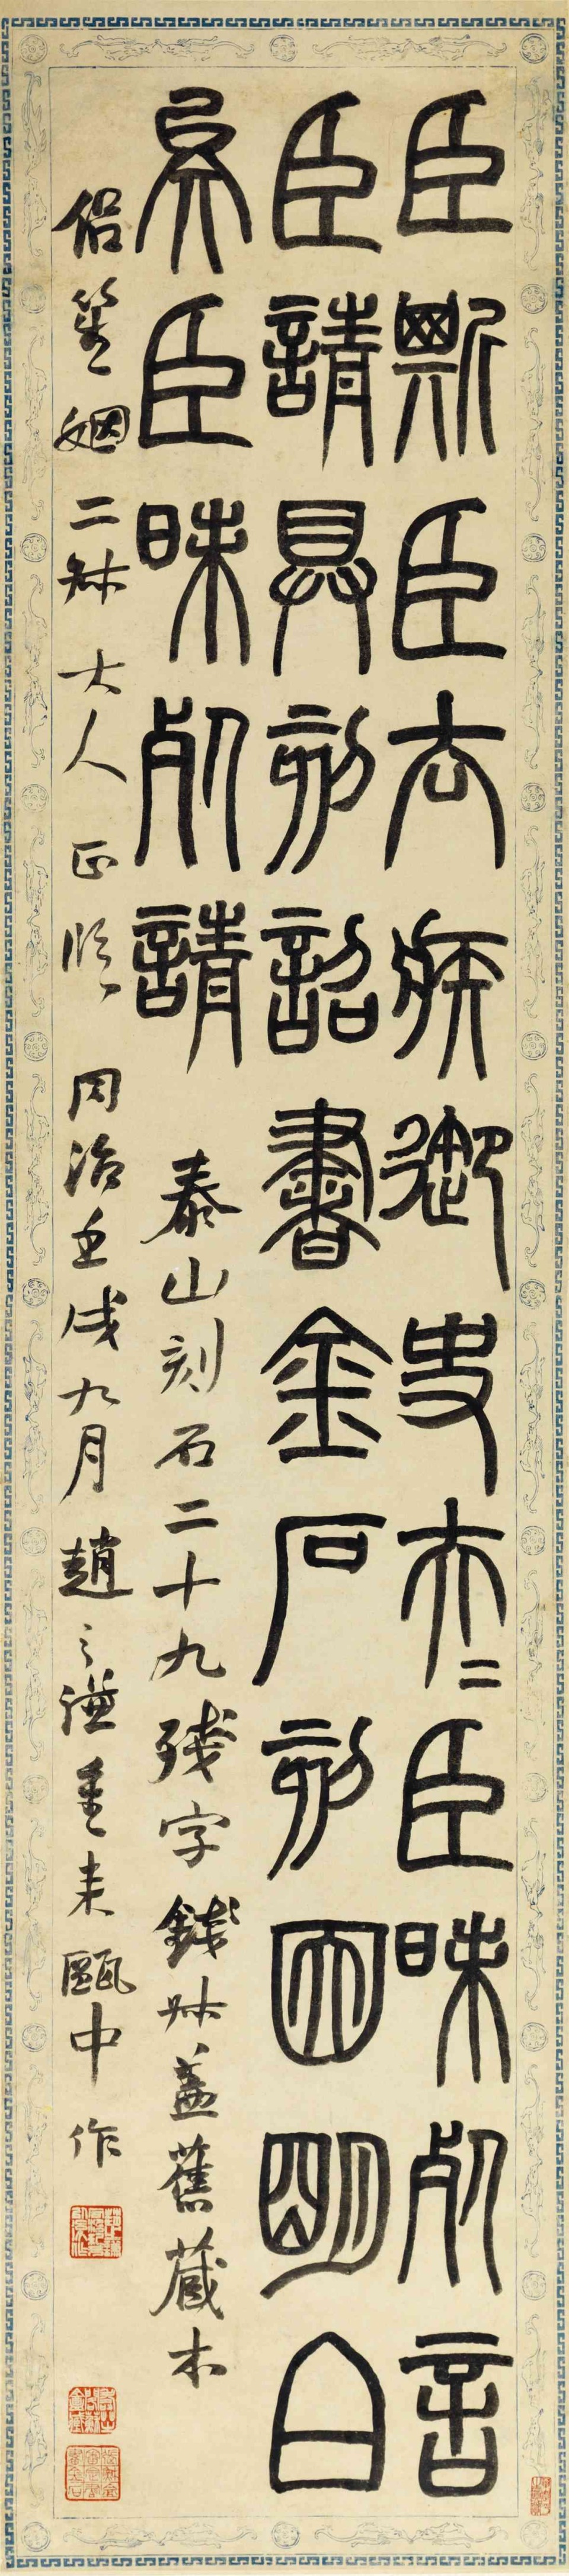 臣斯臣去疾御史夫二臣昧死言
臣請具刻詔書金石刻因明白
矣臣昧死請 泰山刻石二十九殘字錢叔蓋舊藏本
侶笙姻二叔大人正臨 同治壬戌九月趙之謙重來甌中作